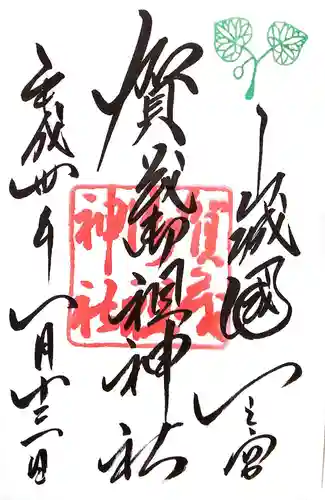 山城國一之宮
賀茂御祖神社
平成廿年八月十三日
賀茂
御祖
神社